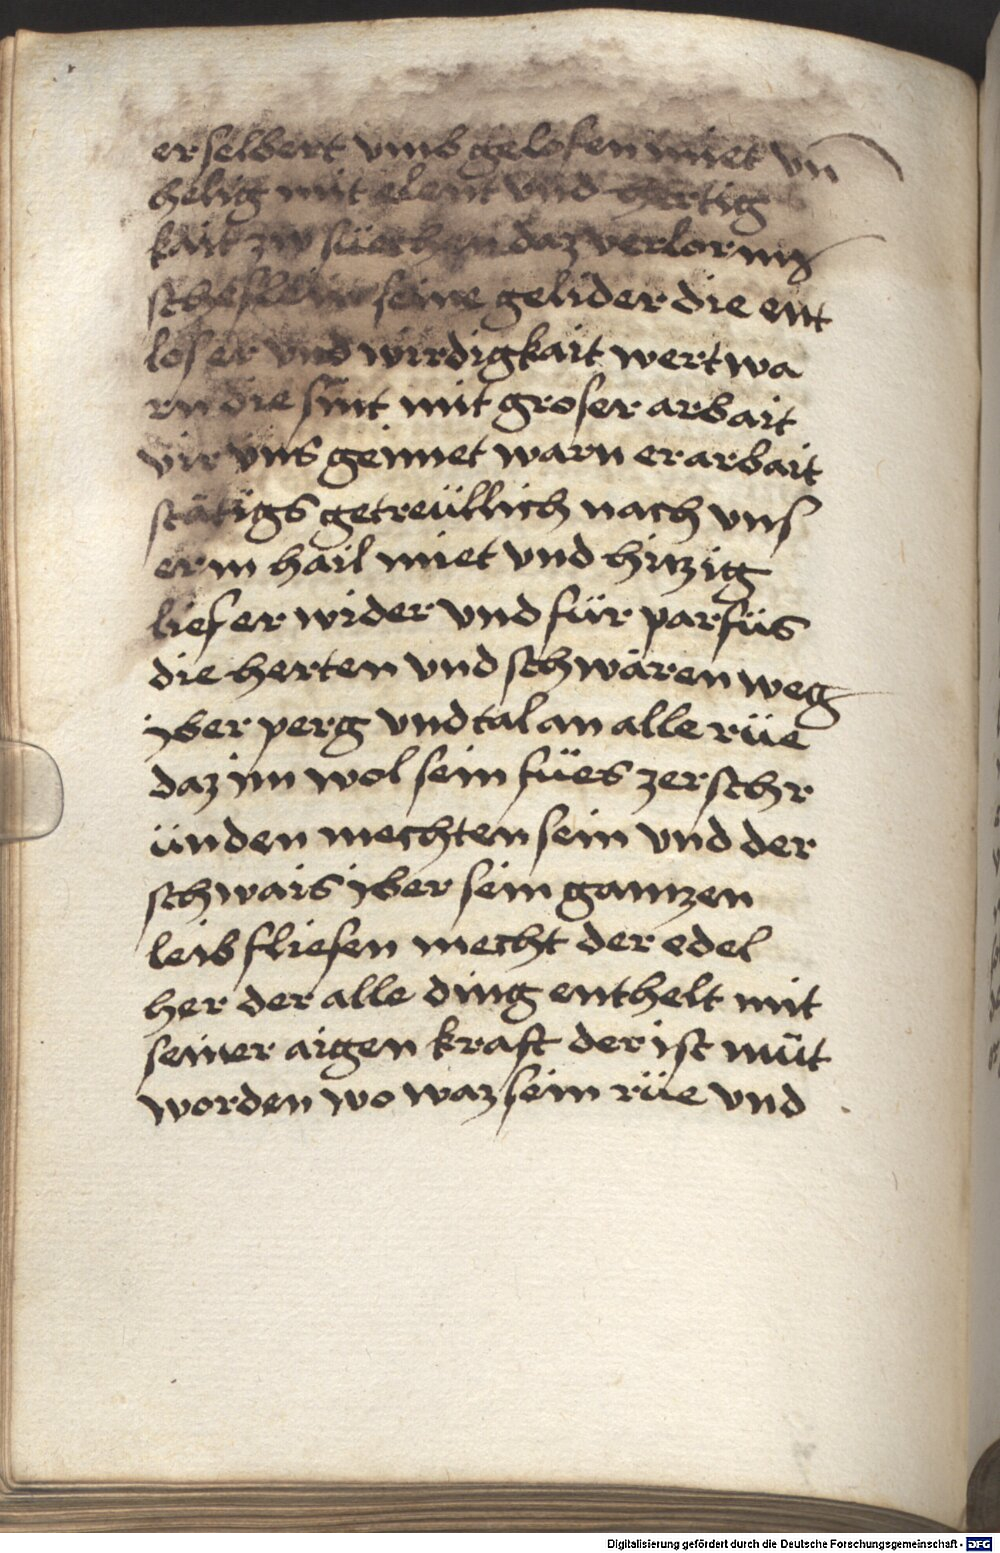 er selbert vmb gelofen miet vn
helig mit elent vnd hertig
kait zw süechen daz verlorn
scheflein seine gelider die ent
loser vnd wirdigkait wert wa
rn die sint mit groser arbait
vir vns geimet warn er arbait
stätigs getreüllich nach vns
erm hail miet vnd hitzig
lief er wider vnd für parfüs
die herten vnd schwären weg
yber perg vnd tal an alle rüe
daz im wol sein fües zerschr
ünden mechten sein vnd der
schwais yber sein gantzen
leib fliesen mecht der edel
her der alle ding enthelt mit
seiner aigen kraft der ist müt
worden wo waz sein rüe vnd
Digitalisierung gefördert durch die Deutsche Forschungsgemeinschaft - DFG